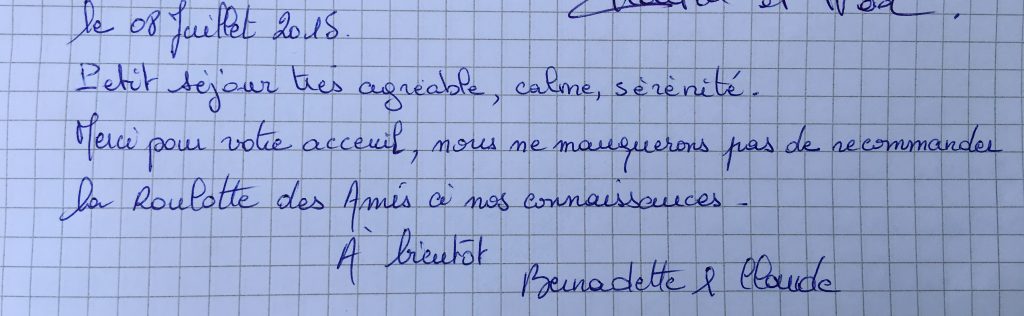 le 08 Juillet 2015.
Petit séjour très agréable, calme, sérénité.
Merci pour votre acceuil, nous ne manquerons pas de recommander
la Roulotte des Amis à nos connaissances -
À bientôt
Bernadette & Claude